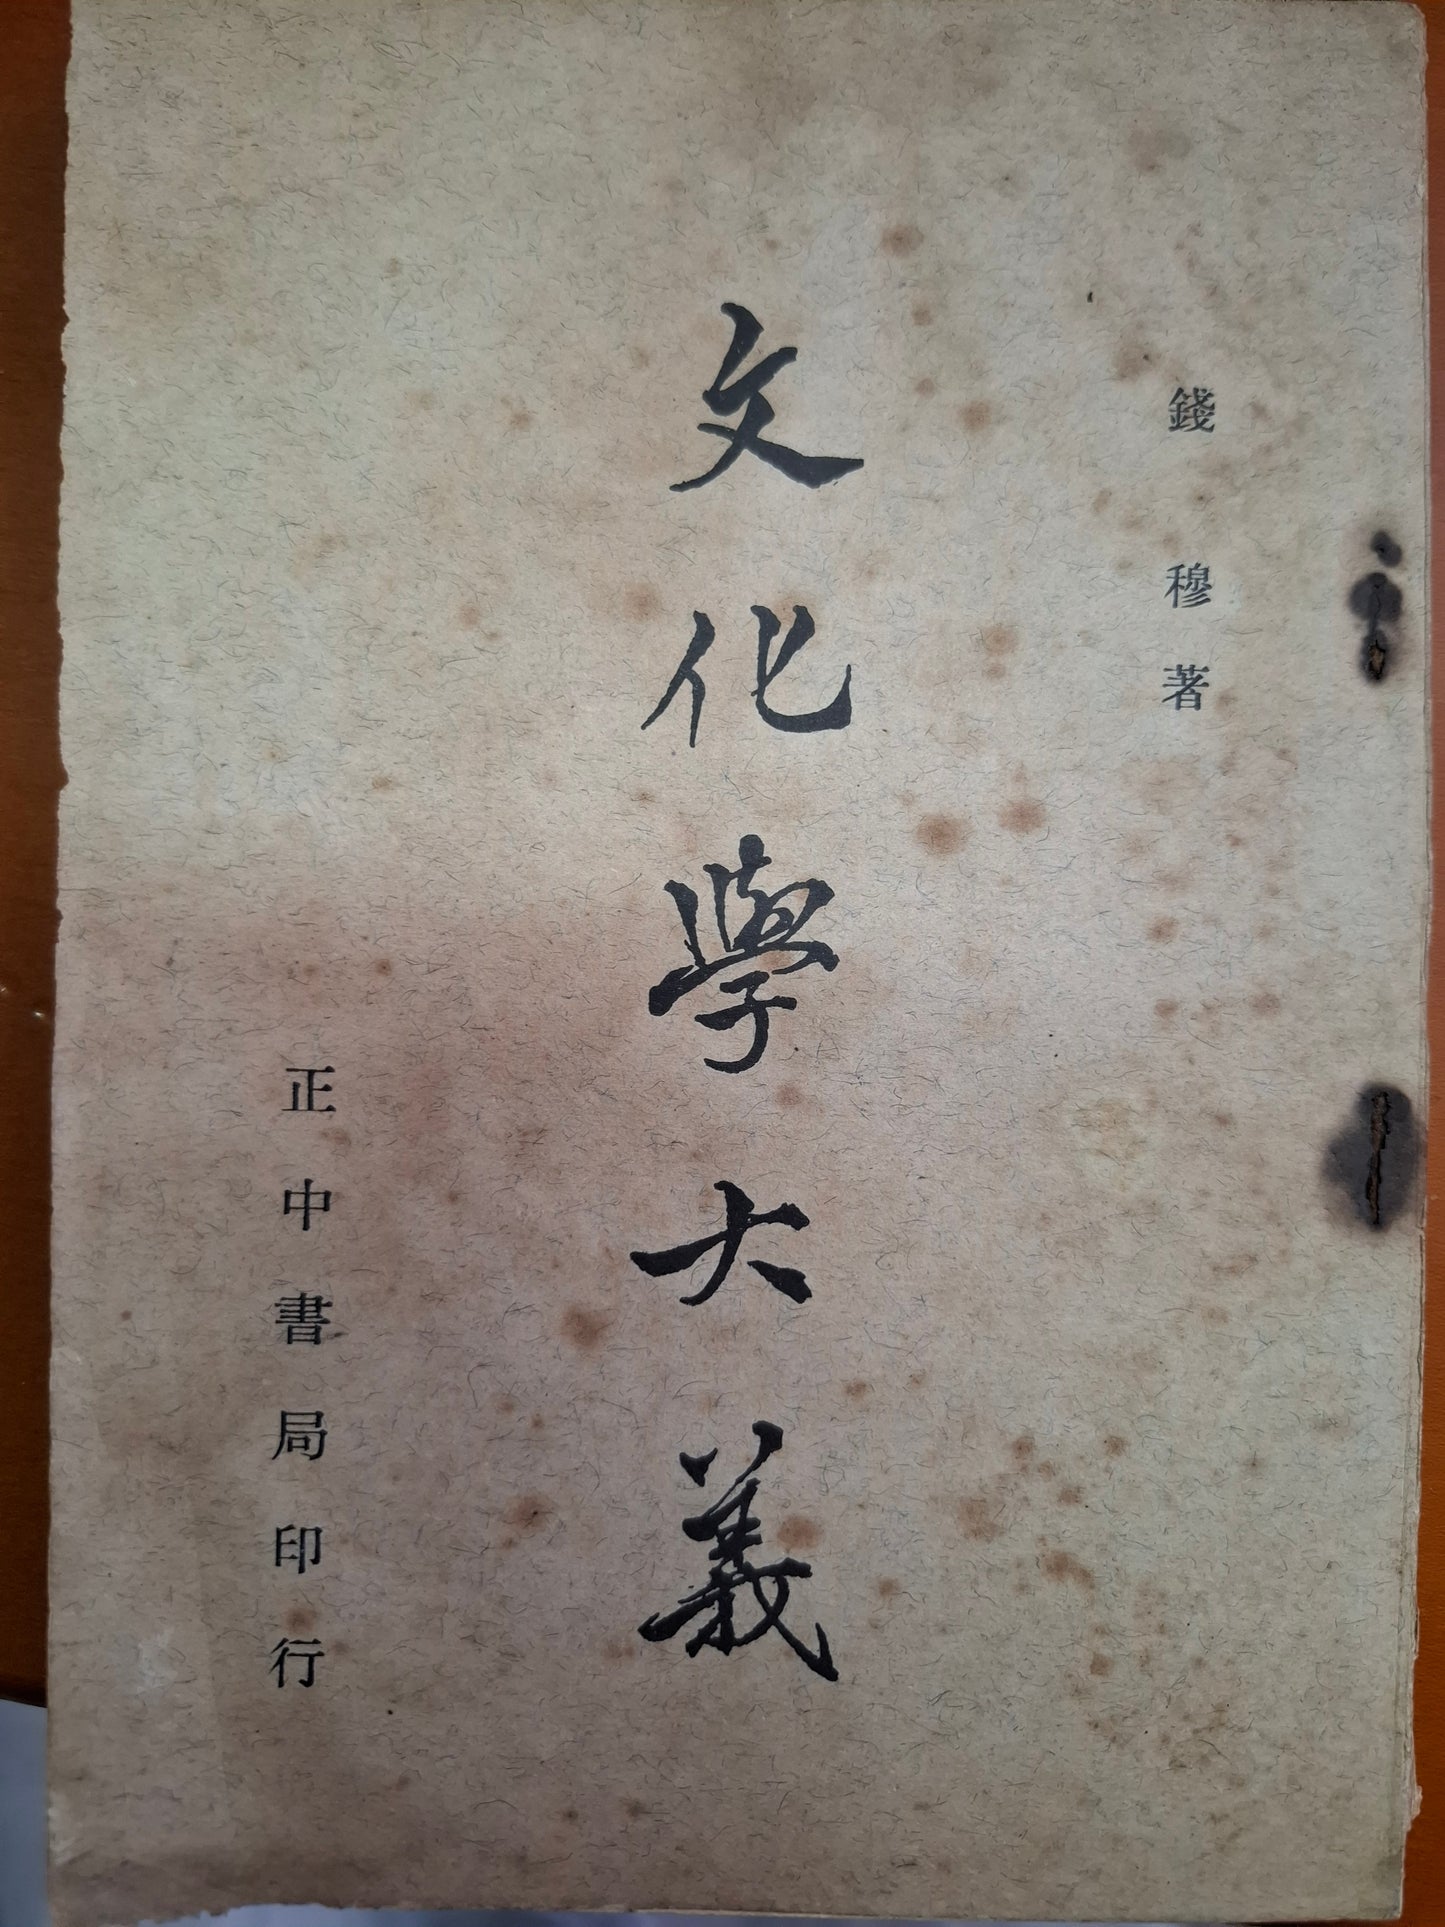 錢穆著
文化學大義
正中書局印行